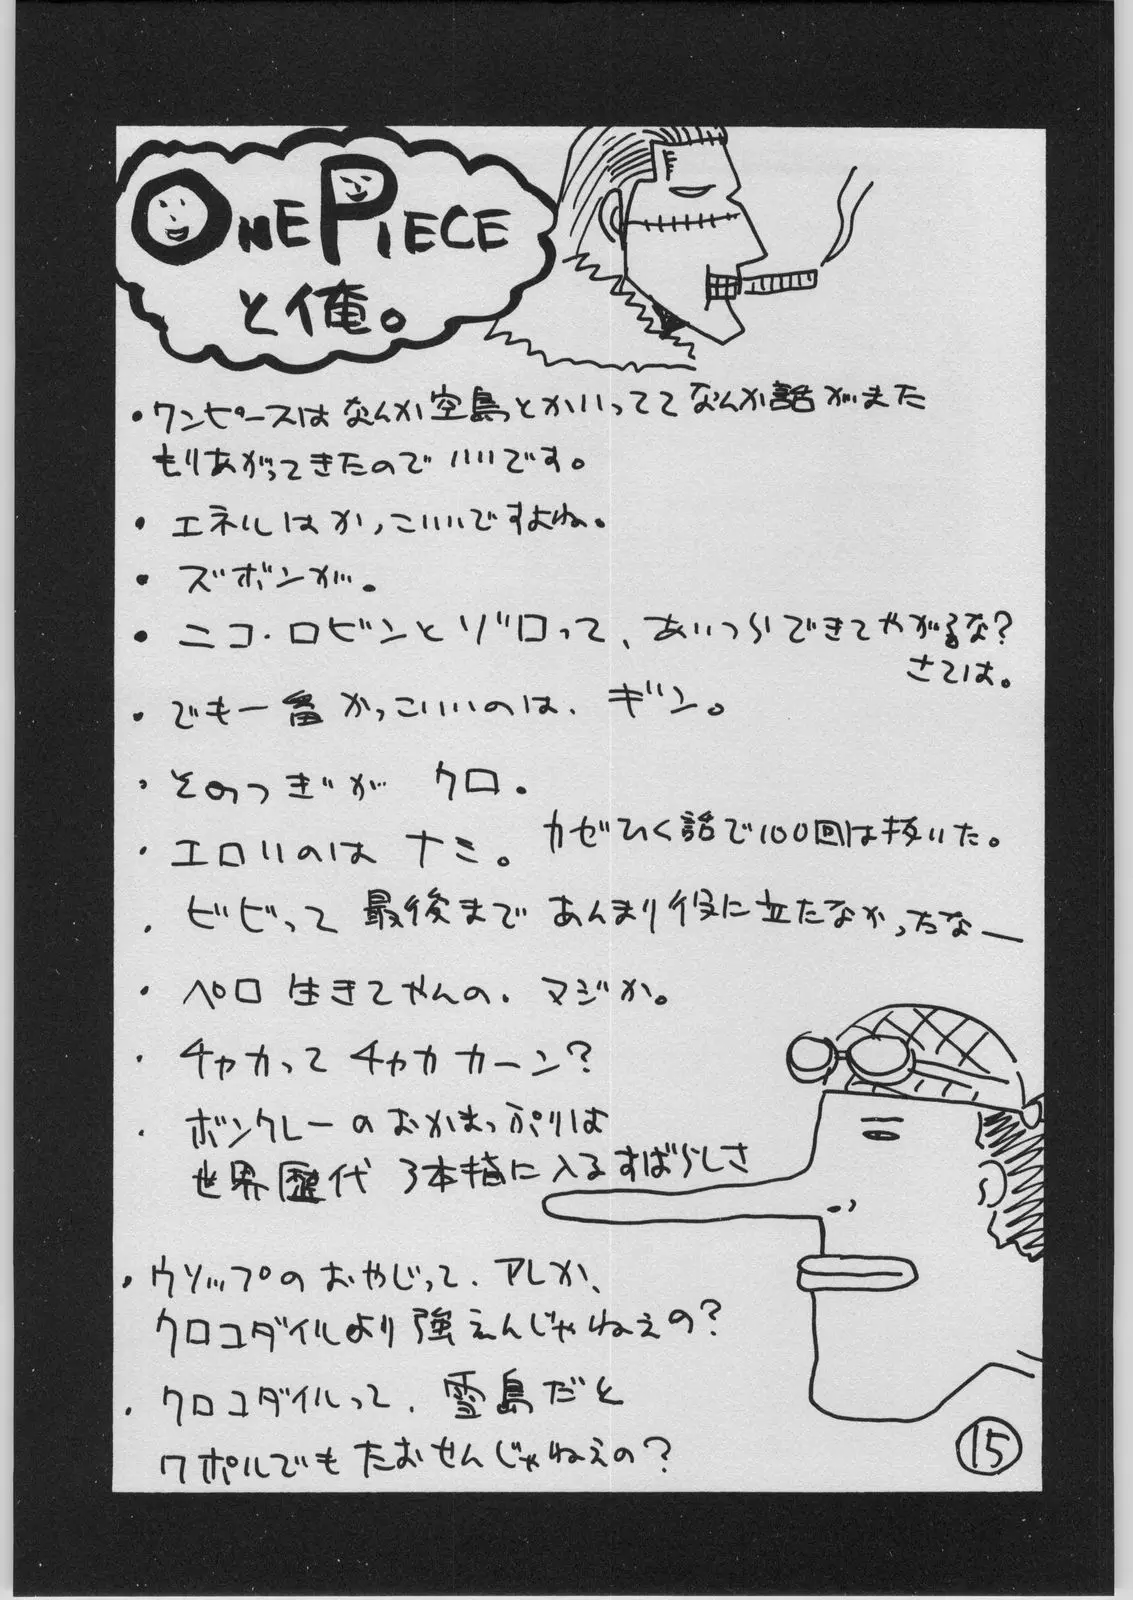 ONE PIECE
と俺。
・ワンピースはなんか空島とかいっててなんか話がまた
もりあがってきたのでいいです。
・エネルはかっこいいですよね。
・ズボンが。
・ニコ・ロビンとゾロって、あいつらできてやがるな?
さては。
・でも一番かっこいいのは、ギン。
・そのつぎが クロ。
・エロいのは ナミ。 カゼひく話で100回は抜いた。
・ビビって 最後まで あんまり役に立たなかったなー
・ペロ 生きてやんの。マジか。
・チャカって チャカ カーン?
・ボンクレーのおかまっぷりは
世界歴代 3本指に入るすばらしさ
・ウソップのおやじって、アレか、
クロコダイルより強えんじゃねぇの?
・クロコダイルって、雪島だと
ワポルでもたおせんじゃねえの?
15